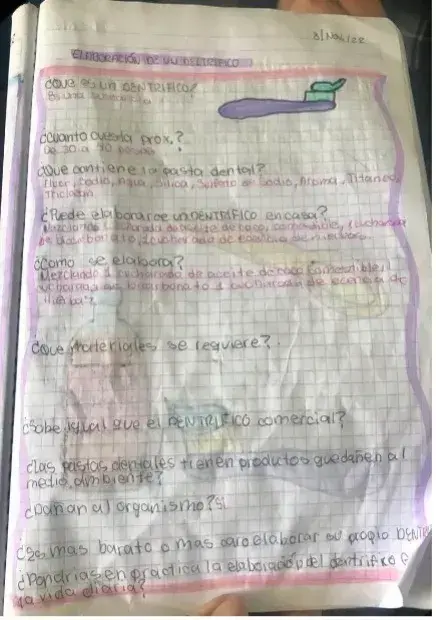 3/Nov/22
ELABORACIÓN DE UN DENTRIFICO
¿QUE ES UN DENTRIFICO?
Es una
¿Cuanto cuesta prox.?
De 30 a 40 pesos
¿Que contiene la pasta dental?
Fluor, Sodio, Agua, Silica, Sulfato de Sodio, Aroma, Titaneo,
Triclosan
¿Puede elaborarse un DENTRIFICO en casa?
Mezclando 1 cucharada de aceite de coco, comestible, 1 cucharada
de bicarbonato, 1 cucharada de
¿Como se elabora?
Mezclando 1 cucharada de aceite de coco comestible, 1
cucharada de bicarbonato 1 cucharada de ecencia de
¿Que materiales se requiere?
¿Sabe igual que el DENTRIFICO comercial?
¿las pastas dentales tienen productos que dañen al
medio ambiente?
¿Dañan al organismo? si
¿Es mas barato o mas caro elaborar su propio DENTRI
¿Pondrias en practica la elaboración del dentrifico e
la vida diaria?